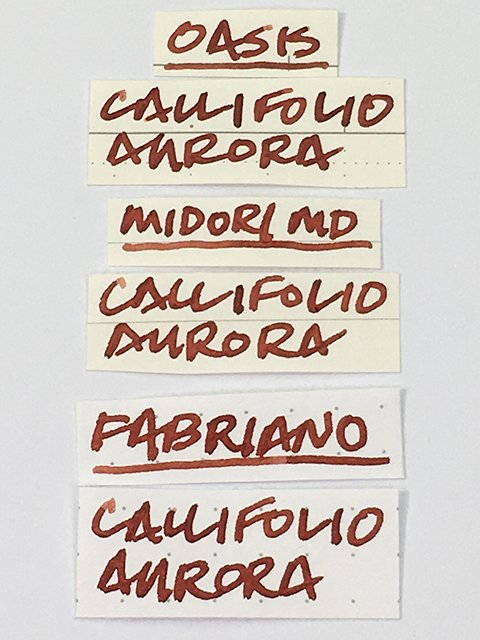 OASIS
CALLIFOLIO
AURORA
MIDORI MD
CALLIFOLIO
AURORA
FABRIANO
CALLIFOLIO
AURORA